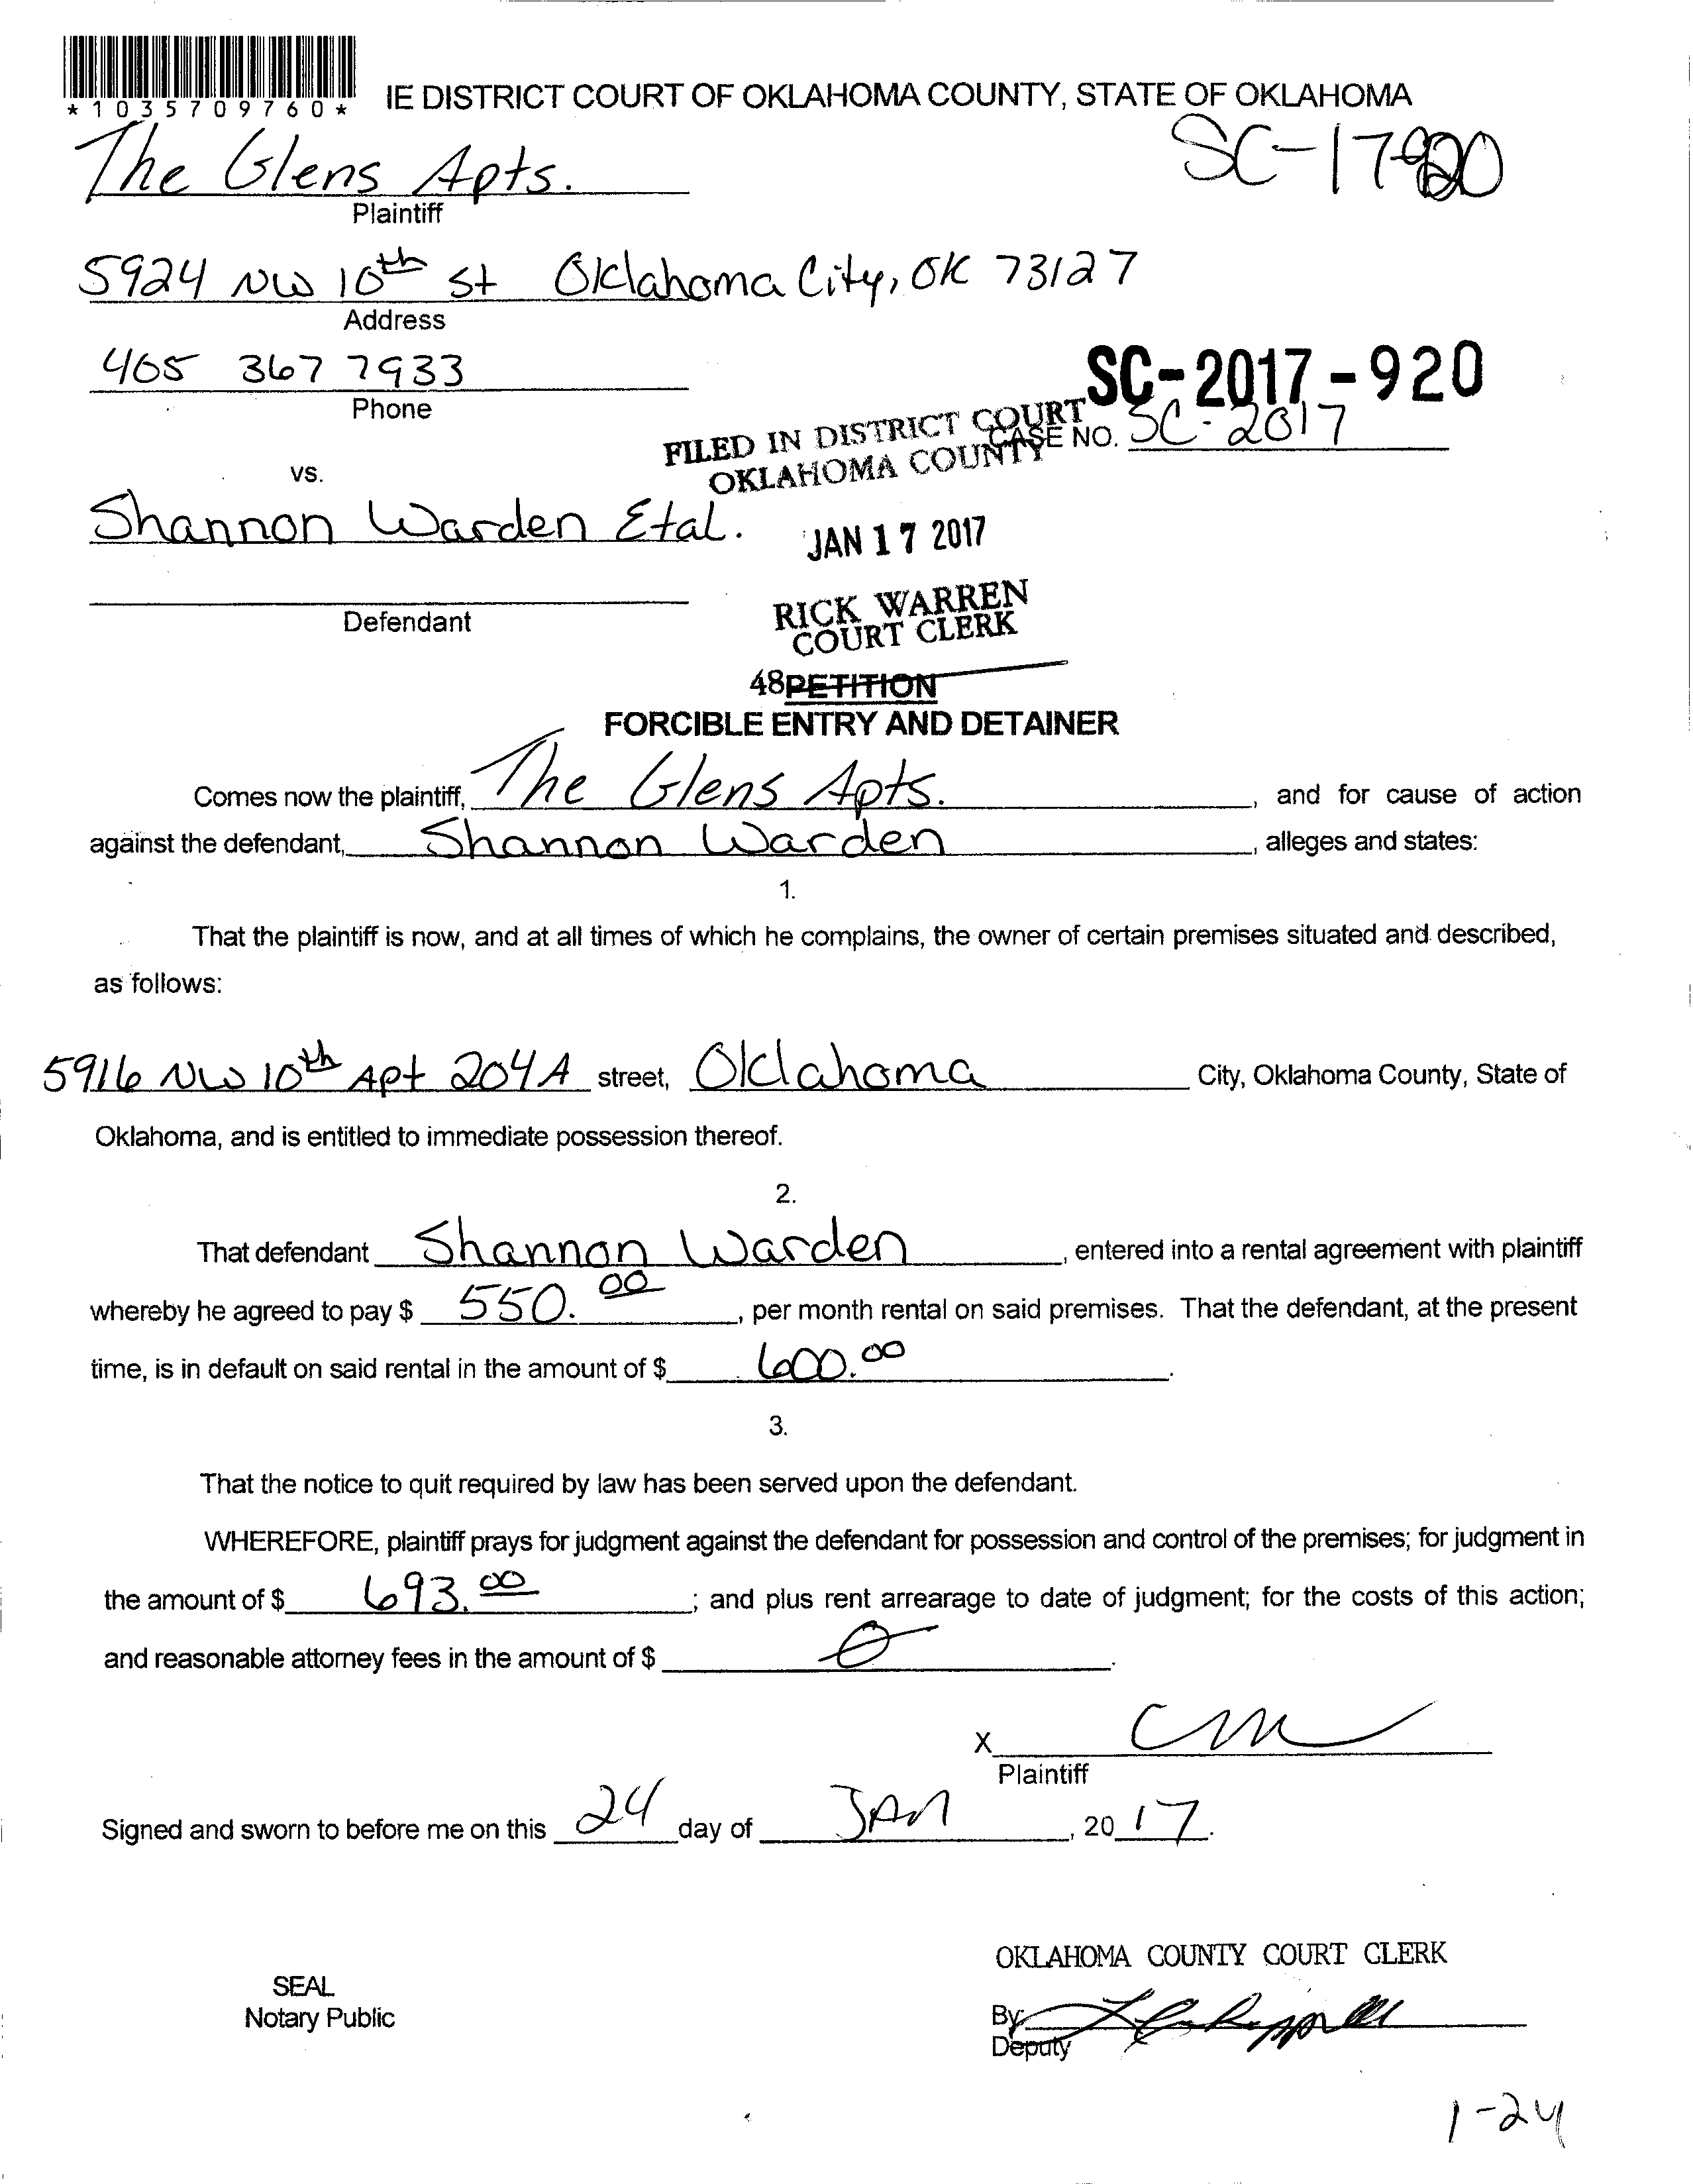 *1035709760*
IE DISTRICT COURT OF OKLAHOMA COUNTY, STATE OF OKLAHOMA
The Glens Apts.
SC-17-920
Plaintiff
5924 NW 10th St Oklahoma City, OK 73127
Address
405 367 7933
SC-2017-920
Phone
FILED IN DISTRICT COURT
OKLAHOMA COUNTY
CASE NO. SC-2017
vs.
Shannon Warden Etal.
JAN 17 2017
Defendant
RICK WARREN
COURT CLERK
48
PETITION
FORCIBLE ENTRY AND DETAINER
Comes now the plaintiff, The Glens Apts., and for cause of action
against the defendant, Shannon Warden, alleges and states:
1.
That the plaintiff is now, and at all times of which he complains, the owner of certain premises situated and described,
as follows:
5916 NW 10th Apt 204A street, Oklahoma City, Oklahoma County, State of
Oklahoma, and is entitled to immediate possession thereof.
2.
That defendant Shannon Warden, entered into a rental agreement with plaintiff
whereby he agreed to pay $ 550.00, per month rental on said premises. That the defendant, at the present
time, is in default on said rental in the amount of $ 600.00.
3.
That the notice to quit required by law has been served upon the defendant.
WHEREFORE, plaintiff prays for judgment against the defendant for possession and control of the premises; for judgment in
the amount of $ 693.00; and plus rent arrearage to date of judgment; for the costs of this action;
and reasonable attorney fees in the amount of $ 0.
X
Plaintiff
Signed and sworn to before me on this 24 day of JAN, 2017.
OKLAHOMA COUNTY COURT CLERK
SEAL
Notary Public
By
Deputy
1-24